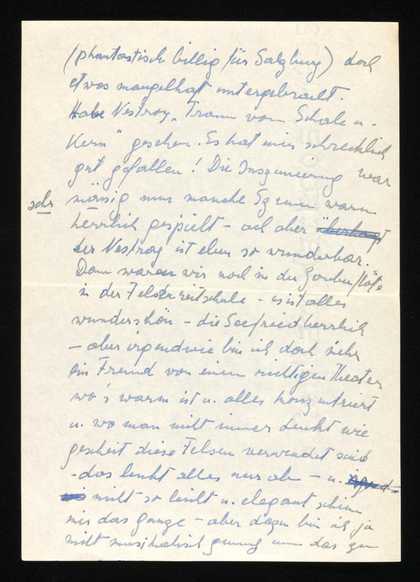 (phantastisch billig für Salzburg) doch
etwas mangelhaft untergebracht.
Habe Nestroy „Traum von Schale u.
Kern" gesehen. Es hat mir schrecklich
gut gefallen! Die Inszenierung war
sehr mässig nur manche Szenen waren
herrlich gespielt - ach aber überhaupt
der Nestroy ist eben so wunderbar.
Dann waren wir noch in der Zauberflöte
in der Felsenreitschule - es ist alles
wunderschön - die Seefried herrlich
- aber irgendwie bin ich doch mehr
ein Freund von einem richtigen Theater
wo's warm ist u. alles konzentriert
u. wo man nicht immer denkt wie
gescheit diese Felsen verwendet sind
- das lenkt alles nur ab - u.
nicht so leicht u. elegant schien
mir das Ganze - aber dazu bin ich ja
nicht musikalisch genug um das zu